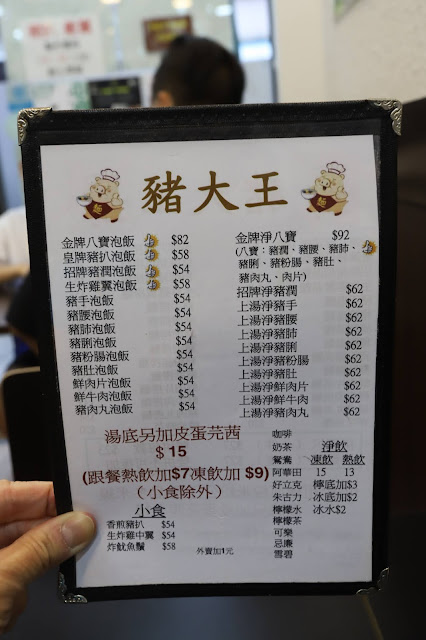 豬大王
金牌八寶泡飯 $82
皇牌豬扒泡飯 $58
招牌豬潤泡飯 $54
生炸雞翼泡飯 $58
豬手泡飯 $54
豬腰泡飯 $54
豬肺泡飯 $54
豬脷泡飯 $54
豬粉腸泡飯 $54
豬肚泡飯 $54
鮮肉片泡飯 $54
鮮牛肉泡飯 $54
豬肉丸泡飯 $54
金牌淨八寶 $92
(八寶：豬潤、豬腰、豬肺、
豬脷、豬粉腸、豬肚、
豬肉丸、肉片)
招牌淨豬潤 $62
上湯淨豬手 $62
上湯淨豬腰 $62
上湯淨豬肺 $62
上湯淨豬脷 $62
上湯淨豬粉腸 $62
上湯淨豬肚 $62
上湯淨鮮肉片 $62
上湯淨鮮牛肉 $62
上湯淨豬肉丸 $62
湯底另加皮蛋芫茜
$15
(跟餐熱飲加$7凍飲加 $9)
(小食除外)
小食
香煎豬扒 $54
生炸雞中翼 $54
炸魷魚鬚 $58
外賣加1元
咖啡
奶茶 淨飲
鴛鴦 凍飲 熱飲
阿華田 15 13
好立克 檸底加$3
朱古力 冰底加$2
檸檬水 冰水$2
檸檬茶
可樂
忌廉
雪碧